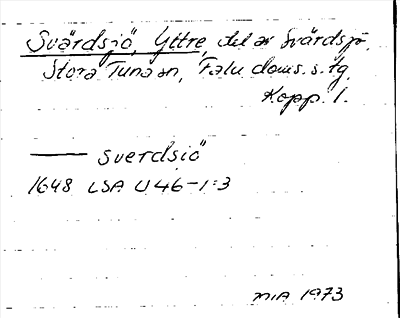 Svärdsjö, Yttre, del av Svärdsjö,
Stora Tuna sn, Falu doms. s. tg
Kopp. l.
—— Sverdsiö
1648 LSA U 46-1:3
MIA 1973